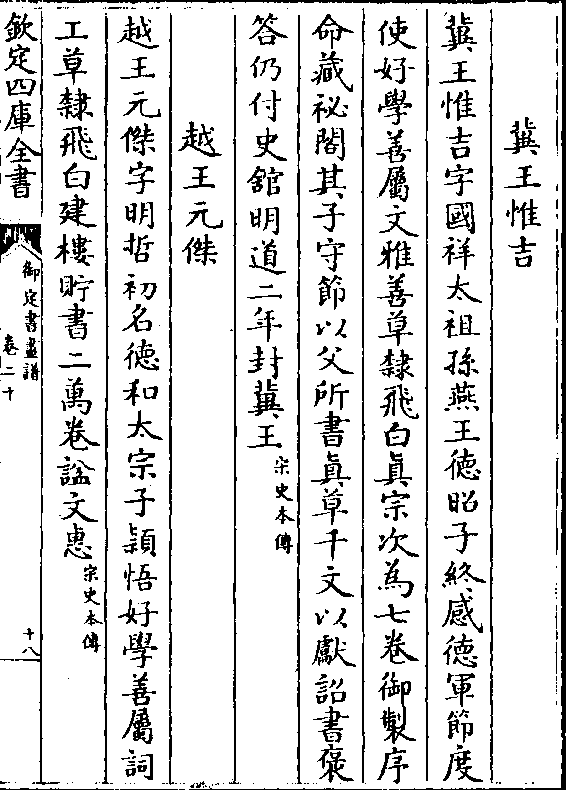 冀王惟吉
冀王惟吉字國祥太祖孫燕王徳昭子終感徳軍節度
使好學善屬文雅善草隸飛白真宗次為七卷御製序
命藏祕閣其子守節以父所書真草千文以獻詔書襃
答仍付史舘明道二年封冀王宋史本傳
越王元傑
越王元傑字明哲初名徳和太宗子頴悟好學善屬詞
工草隸飛白建樓貯書二萬卷諡文惠宋史本傳
欽定四庫全書
御定書畫譜
卷二十
十八